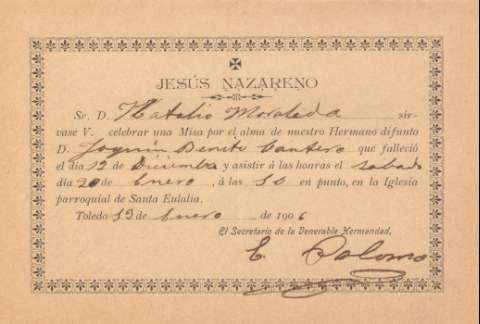 JESÚS NAZARENO
Sr. D. Natalio Moraleda sír-
vase V. celebrar una Misa por el alma de nuestro Hermano difunto
D. Joaquín Benito Cantero que falleció
el día 12 de Diciembre y asistir á las honras el sábado
día 20 de Enero, á las 10 en punto, en la Iglesia
parroquial de Santa Eulalia.
Toledo 19 de Enero de 1906
El Secretario de la Venerable Hermandad,
E. Palomo